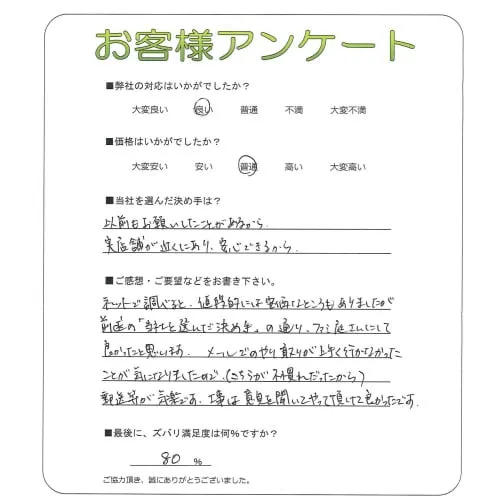 お客様アンケート
■弊社の対応はいかがでしたか？
大変良い 良い 普通 不満 大変不満
■価格はいかがでしたか？
大変安い 安い 普通 高い 大変高い
■当社を選んだ決め手は？
以前もお願いしたことがあるから
実店舗が近くにあり、安心できるから
■ご感想・ご要望などをお書き下さい。
ネットで調べると、値段的には安価なところもありましたが
前述の「当社を選んだ決め手」の通り、ファミ庭さんにして
良かったと思います。メールでのやり取りが上手く行かなかった
ことが気になりましたので、(こちらが不慣れだったから)
郵送等が気楽です。工事は意見を聞いてやって頂けて良かったです。
■最後に、ズバリ満足度は何％ですか？
80 %
ご協力頂き、誠にありがとうございました。